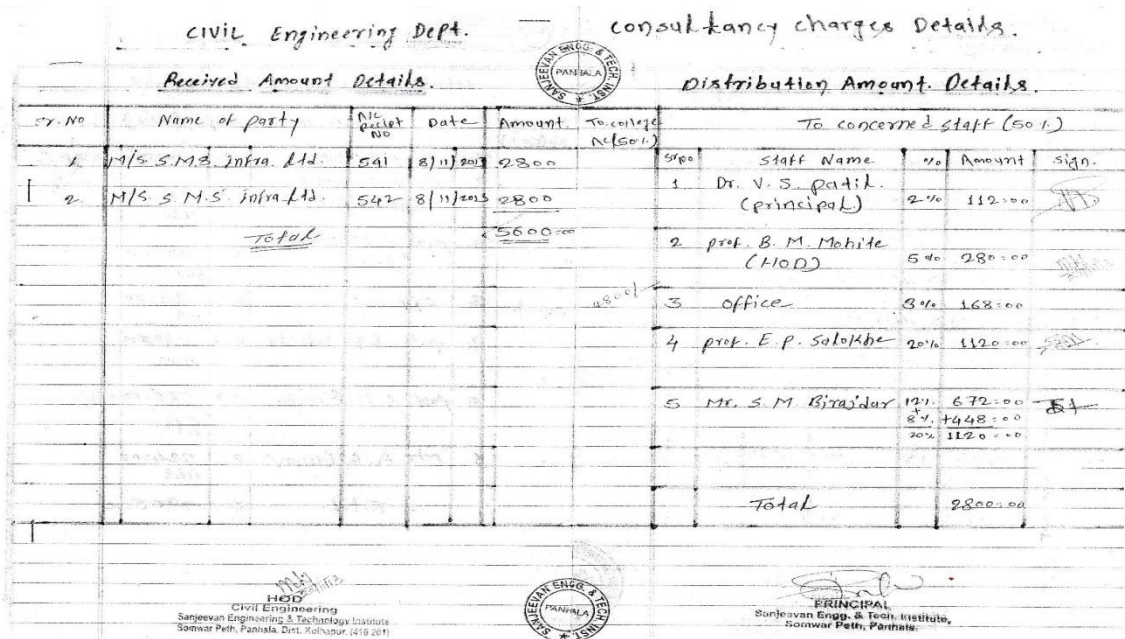 CIVIL Engineering Dept. consultancy charges Details.
SANJEEVAN ENGG. & TECH. INST. PANHALA
Received Amount Details. Distribution Amount. Details.
sr. No Name of party A/c Reciept NO Date Amount. To. college A/c(50%) To concerned staff (50%)
Srno Staff Name % Amount Sign.
1 M/S S.M.S. infra. Ltd. 541 8/11/2013 2800
1 Dr. V. S. patil. (principal) 2% 112=00
2 M/S. S.M.S. infra Ltd. 542 8/11/2013 2800
Total 5600=00
2 prof. B. M. Mohite (HOD) 5% 280=00
3 office 3% 168=00
4 prof. E.P. Salokhe 20% 1120=00
5 Mr. S. M. Birajdar 12% 672=00
+ 8% +448=00
20% 1120=00
Total 2800=00
HOD
Civil Engineering
Sanjeevan Engineering & Technology Institute
Somwar Peth, Panhala. Dist. Kolhapur. (416 201)
SANJEEVAN ENGG. & TECH. INST. PANHALA
PRINCIPAL
Sanjeevan Engg. & Tech. Institute,
Somwar Peth, Panhala.